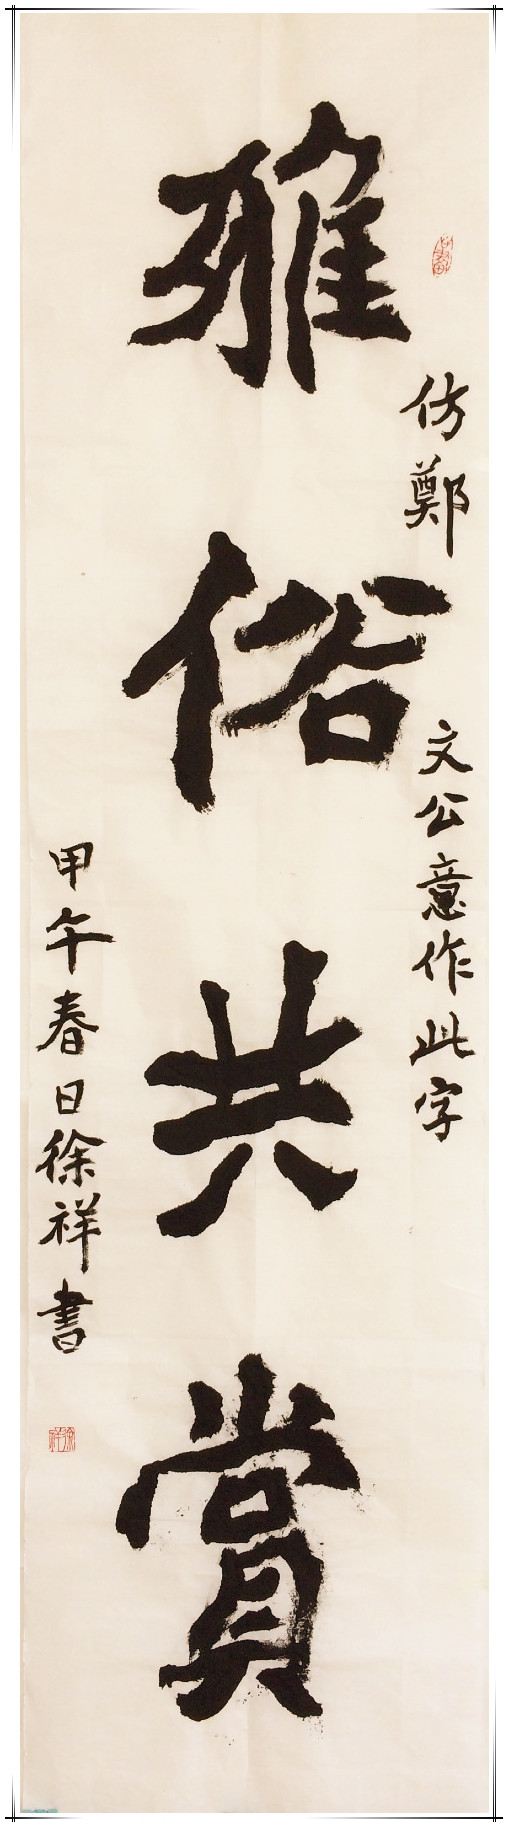 仿鄭文公意作此字
雅俗共賞
甲午春日徐祥書
徐祥